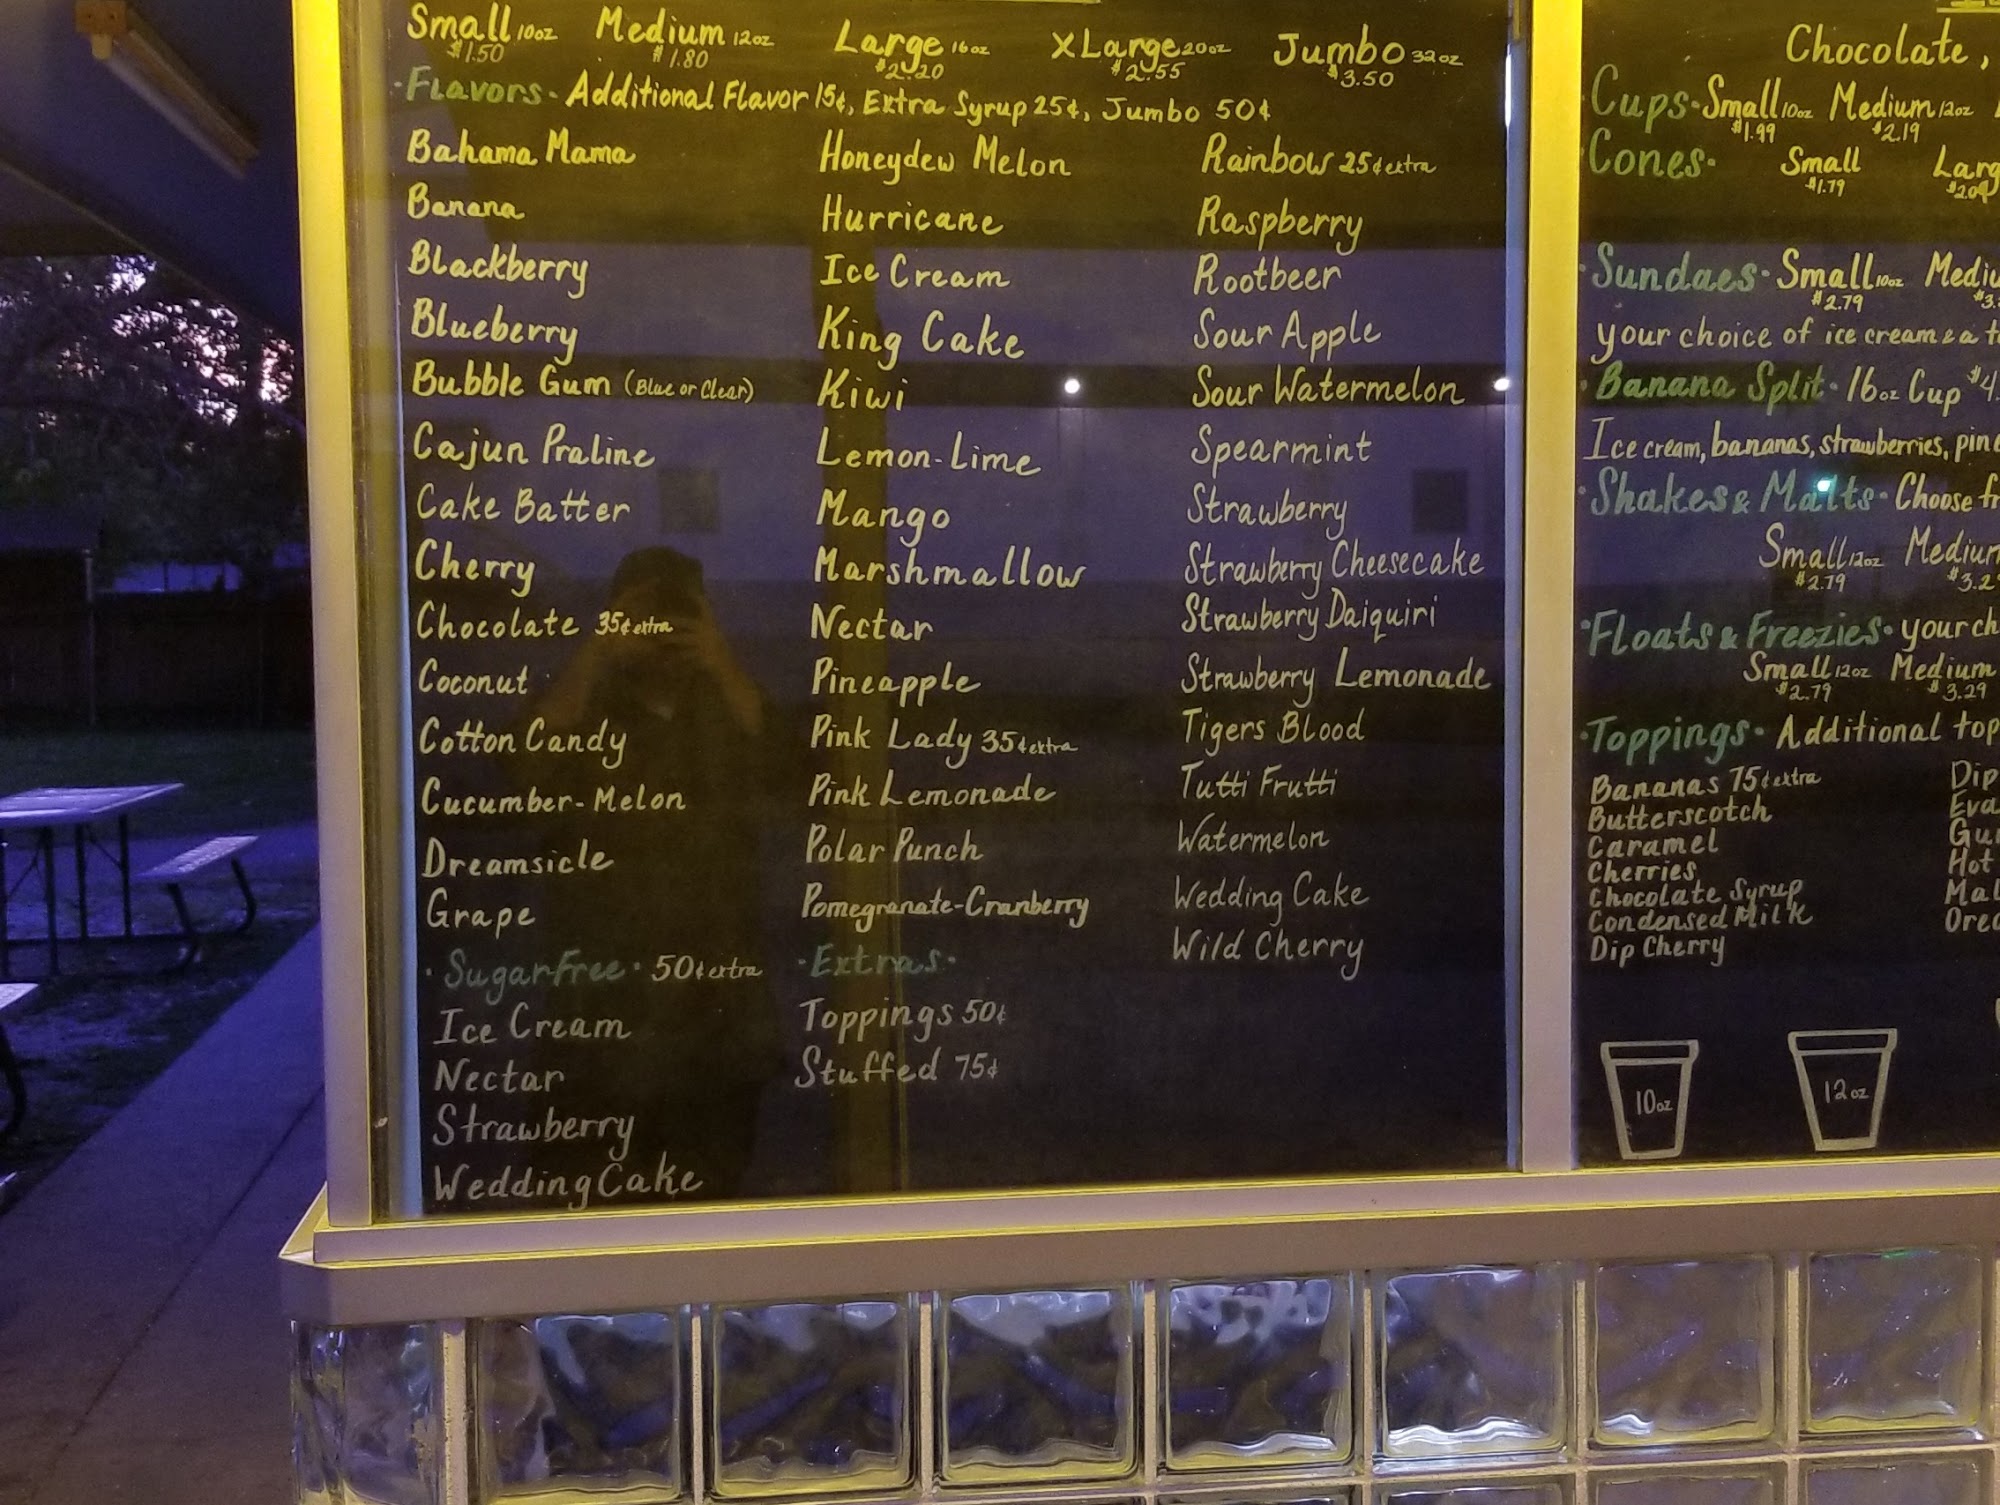 Small 10oz Medium 12oz Large 16oz XLarge 20oz Jumbo 32oz
$1.50 $1.80 $2.20 $2.55 $3.50
·Flavors· Additional Flavor 15¢, Extra Syrup 25¢, Jumbo 50¢
Bahama Mama
Banana
Blackberry
Blueberry
Bubble Gum (Blue or Clear)
Cajun Praline
Cake Batter
Cherry
Chocolate 35¢ extra
Coconut
Cotton Candy
Cucumber-Melon
Dreamsicle
Grape
·Sugar-Free· 50¢ extra
Ice Cream
Nectar
Strawberry
Wedding Cake
Honeydew Melon
Hurricane
Ice Cream
King Cake
Kiwi
Lemon-Lime
Mango
Marshmallow
Nectar
Pineapple
Pink Lady 35¢ extra
Pink Lemonade
Polar Punch
Pomegranate-Cranberry
·Extras·
Toppings 50¢
Stuffed 75¢
Rainbow 25¢ extra
Raspberry
Rootbeer
Sour Apple
Sour Watermelon
Spearmint
Strawberry
Strawberry Cheesecake
Strawberry Daiquiri
Strawberry Lemonade
Tigers Blood
Tutti Frutti
Watermelon
Wedding Cake
Wild Cherry
Chocolate,
Cups· Small 10oz Medium 12oz
$1.99 $2.19
Cones· Small Larg
$1.79
·Sundaes· Small 10oz Mediu
$2.79 $3.
your choice of ice cream & a t
·Banana Split· 16oz Cup $4.
Ice cream, bananas, strawberries, pine
·Shakes & Malts· Choose fr
Small 12oz Medium
$2.79 $3.2
·Floats & Freezies· your ch
Small 12oz Medium
$2.79 $3.29
·Toppings· Additional top
Bananas 75¢ extra
Butterscotch
Caramel
Cherries
Chocolate Syrup
Condensed Milk
Dip Cherry
Dip
Eva
Gu
Hot
Mal
Oreo
10oz 12oz